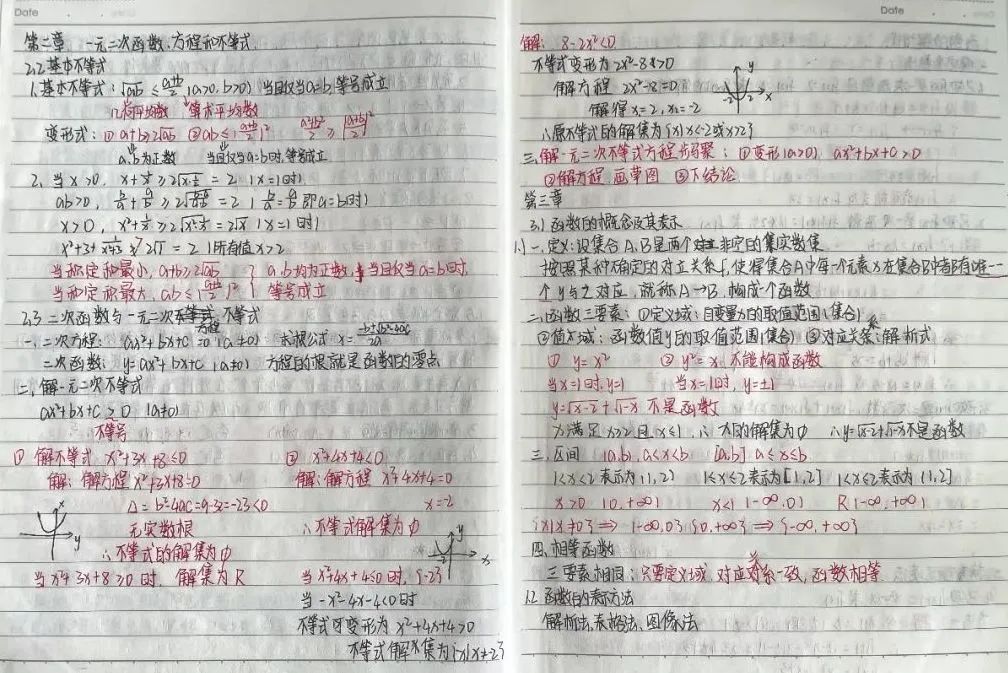 Date
第二章 一元二次函数、方程和不等式
2.2 基本不等式
1.基本不等式:√ab ≤ (a+b)/2 (a>0, b>0) 当且仅当a=b,等号成立
几何平均数 算术平均数
变形式:① a+b≥2√ab ②ab≤(a+b/2)²
a,b为正数 当且仅当a=b时,等号成立
2. 当x>0, x+1/x ≥ 2√x·1/x = 2 (x=1时)
ab>0, b/a + a/b ≥ 2√b/a·a/b = 2 (b/a = a/b 即a=b时)
当积定和最小, a+b≥2√ab a,b均为正数,当且仅当a=b时,
当和定积最大, ab≤(a+b/2)² 等号成立
2.3 二次函数与一元二次方程,不等式
一、二次方程: ax²+bx+c=0 (a≠0) 求根公式 x=
二次函数: y=ax²+bx+c (a≠0) 方程的根就是函数的零点
二、解一元二次不等式
ax²+bx+c>0 (a≠0)
不等号
① 解不等式 x²+3x+8≤0 ② x²+4x+4<0
解:解方程 x²+3x+8=0 解:解方程 x²+4x+4=0
Δ=b²-4ac=9-32=-23<0 x=-2
无实数根 ∴不等式解集为∅
∴不等式的解集为∅
当x²+3x+8≥0时, 解集为R 当x²+4x+4≤0时, {-2}
当-x²-4x-4<0时
不等式可变形为 x²+4x+4>0
不等式解集为{x|x≠-2}
Date
解: 8-2x²<0
不等式变形为 2x²-8>0
解方程 2x²-8=0
解得x₁=2, x₂=-2
∴原不等式的解集为{x|x<-2或x>2}
三、解一元二次不等式方程步骤: ①变形(a>0) ax²+bx+c>0
②解方程 画草图 ③下结论
第三章
3.1 函数的概念及其表示
1.1 一、定义:设集合A,B是两个非空的实数集
按照某种确定的对应关系f,使得集合A中每一个元素x在集合B中都有唯一
个y与之对应, 就称A→B, 构成一个函数
二、函数三要素: ①定义域:自变量x的取值范围(集合)
②值域: 函数值y的取值范围(集合) ③对应关系:解析式
① y=x² ② y²=x, 不能构成函数
当x=1时, y=1 当x=1时, y=±1
y=√x-2+√1-x 不是函数
x满足 x≥2且x≤1, ∴ x的解集为∅ ∴y=√x-2+√1-x不是函数
三、区间 (a,b), a<x<b [a,b] a≤x≤b
1<x<2表示为(1,2) 1≤x≤2表示为[1,2] 1<x≤2表示为(1,2]
四、相等函数
三要素相同:只要定义域,对应关系一致,函数相等
1.2 函数的表示方法
解析法、表格法、图像法